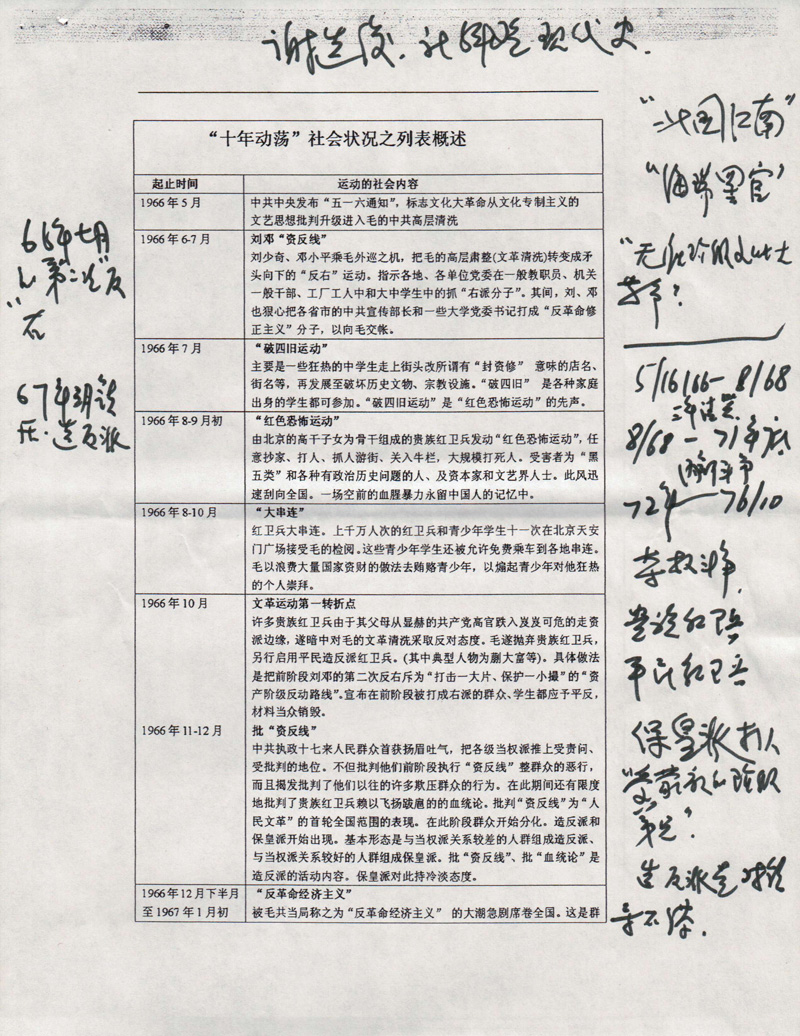 谢选骏.
现代史.
“十年动荡”社会状况之列表概述
起止时间
运动的社会内容
1966年5月
中共中央发布“五一六通知”，标志文化大革命从文化专制主义的
文艺思想批判升级进入毛的中共高层清洗
1966年6-7月
刘邓“资反线”
刘少奇、邓小平乘毛外巡之机，把毛的高层肃整(文革清洗)转变成矛
头向下的“反右”运动。指示各地、各单位党委在一般教职员、机关
一般干部、工厂工人中和大中学生中的抓“右派分子”。其间，刘、邓
也狠心把各省市的中共宣传部长和一些大学党委书记打成“反革命修
正主义”分子，以向毛交帐。
1966年7月
“破四旧运动”
主要是一些狂热的中学生走上街头改所谓有“封资修” 意味的店名、
街名等，再发展至破坏历史文物、宗教设施。“破四旧” 是各种家庭
出身的学生都可参加。“破四旧运动”是“红色恐怖运动”的先声。
1966年8-9月初
“红色恐怖运动”
由北京的高干子女为骨干组成的贵族红卫兵发动“红色恐怖运动”，任
意抄家、打人、抓人游街、关入牛栏，大规模打死人。受害者为“黑
五类”和各种有政治历史问题的人、及资本家和文艺界人士。此风迅
速刮向全国。一场空前的血腥暴力永留中国人的记忆中。
1966年8-10月
“大串连”
红卫兵大串连。上千万人次的红卫兵和青少年学生十一次在北京天安
门广场接受毛的检阅。这些青少年学生还被允许免费乘车到各地串连。
毛以浪费大量国家资财的做法去贿赂青少年，以煽起青少年对他狂热
的个人崇拜。
1966年10月
文革运动第一转折点
许多贵族红卫兵由于其父母从显赫的共产党高官跌入岌岌可危的走资
派边缘，遂暗中对毛的文革清洗采取反对态度。毛遂抛弃贵族红卫兵，
另行启用平民造反派红卫兵。(其中典型人物为蒯大富等)。具体做法
是把前阶段刘邓的第二次反右斥为“打击一大片、保护一小撮”的“资
产阶级反动路线”。宣布在前阶段被打成右派的群众、学生都应予平反，
材料当众销毁。
1966年11-12月
批“资反线”
中共执政十七来人民群众首获扬眉吐气，把各级当权派推上受责问、
受批判的地位。不但批判他们前阶段执行“资反线”整群众的恶行，
而且揭发批判了他们以往的许多欺压群众的行为。在此期间还有限度
地批判了贵族红卫兵赖以飞扬跋扈的的血统论。批判“资反线”为“人
民文革”的首轮全国范围的表现。在此阶段群众开始分化。造反派和
保皇派开始出现。基本形态是与当权派关系较差的人群组成造反派、
与当权派关系较好的人群组成保皇派。批“资反线”、批“血统论”是
造反派的活动内容。保皇派对此持冷淡态度。
1966年12月下半月
至1967年1月初
“反革命经济主义”
被毛共当局称之为“反革命经济主义” 的大潮急剧席卷全国。这是群
66年七月
第二次“反
右
67年3月镇
压.造反派
江南”
“海瑞罢官”
5/16/66-8/68
8/68-71年底
72年-76/10
夺权斗争,
贵族红卫兵
平民红卫兵
保皇派打人
造反派